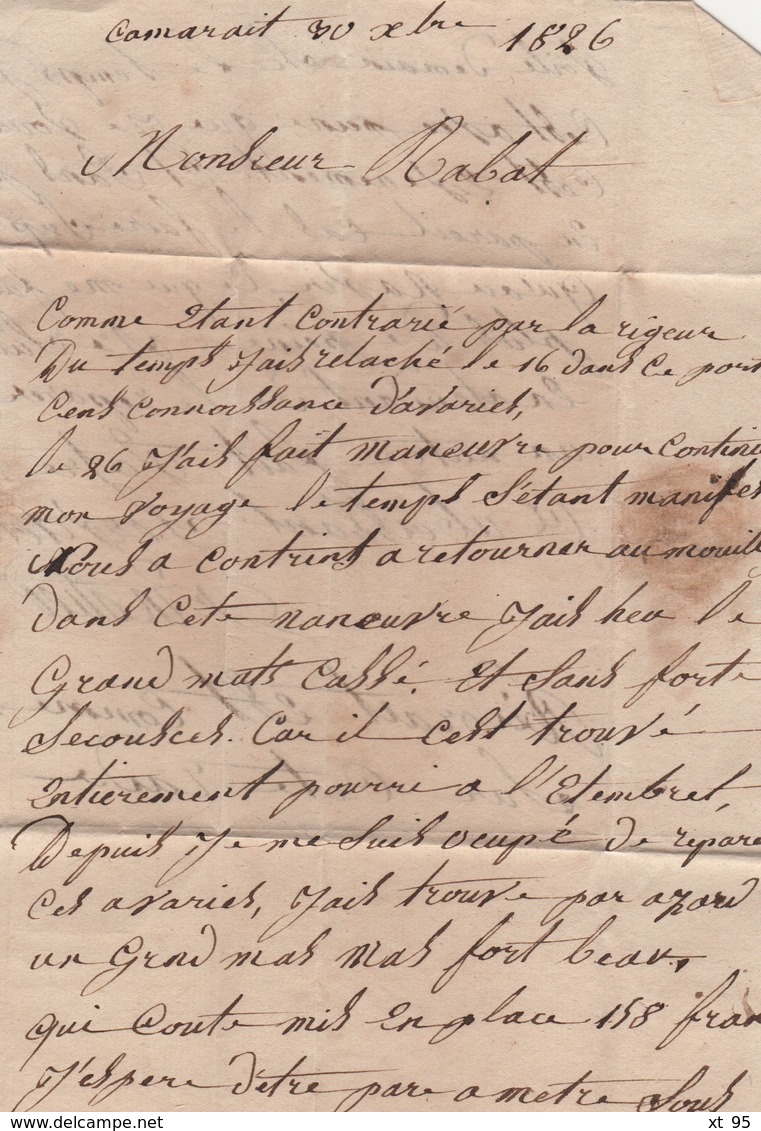 Camarait 30 xbre 1826
Monsieur Rabat
Comme Etant Contrarié par la rigeur
Du temps J'ais relaché le 16 dans Ce port
Cens Connoissance d'avaries,
le 26 J'ais fait manœuvre pour Continu
mon Voyage le temps S'étant manifes
Nous a Contrints a retourner au mouill
dans Cete nanœuvre J'ais heu le
Grand mats Cassé. Et Sans forte
Secousses. Car il C'est trouvé
Entierement pourri a l'Etembret,
Depuis Je me Suis ocupé de répare
Ces avaries, J'ais trouve par azard
un Grnd mas mas fort beau,
qui Coute mis En place 158 fran
J'espere d'etre pare a metre Sous
xt 95